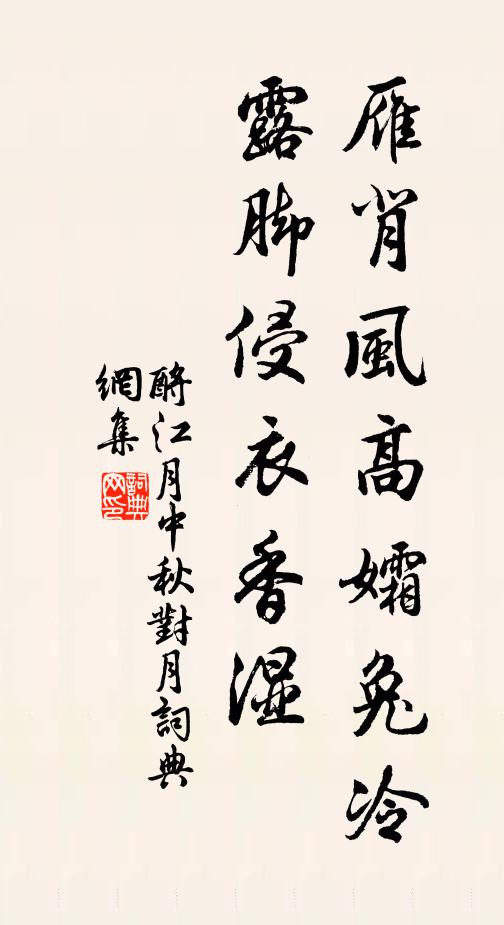 雁背風高孀兔冷
露脚侵衣香湿
酹江月中秋對月詞典
網集
詞典网印